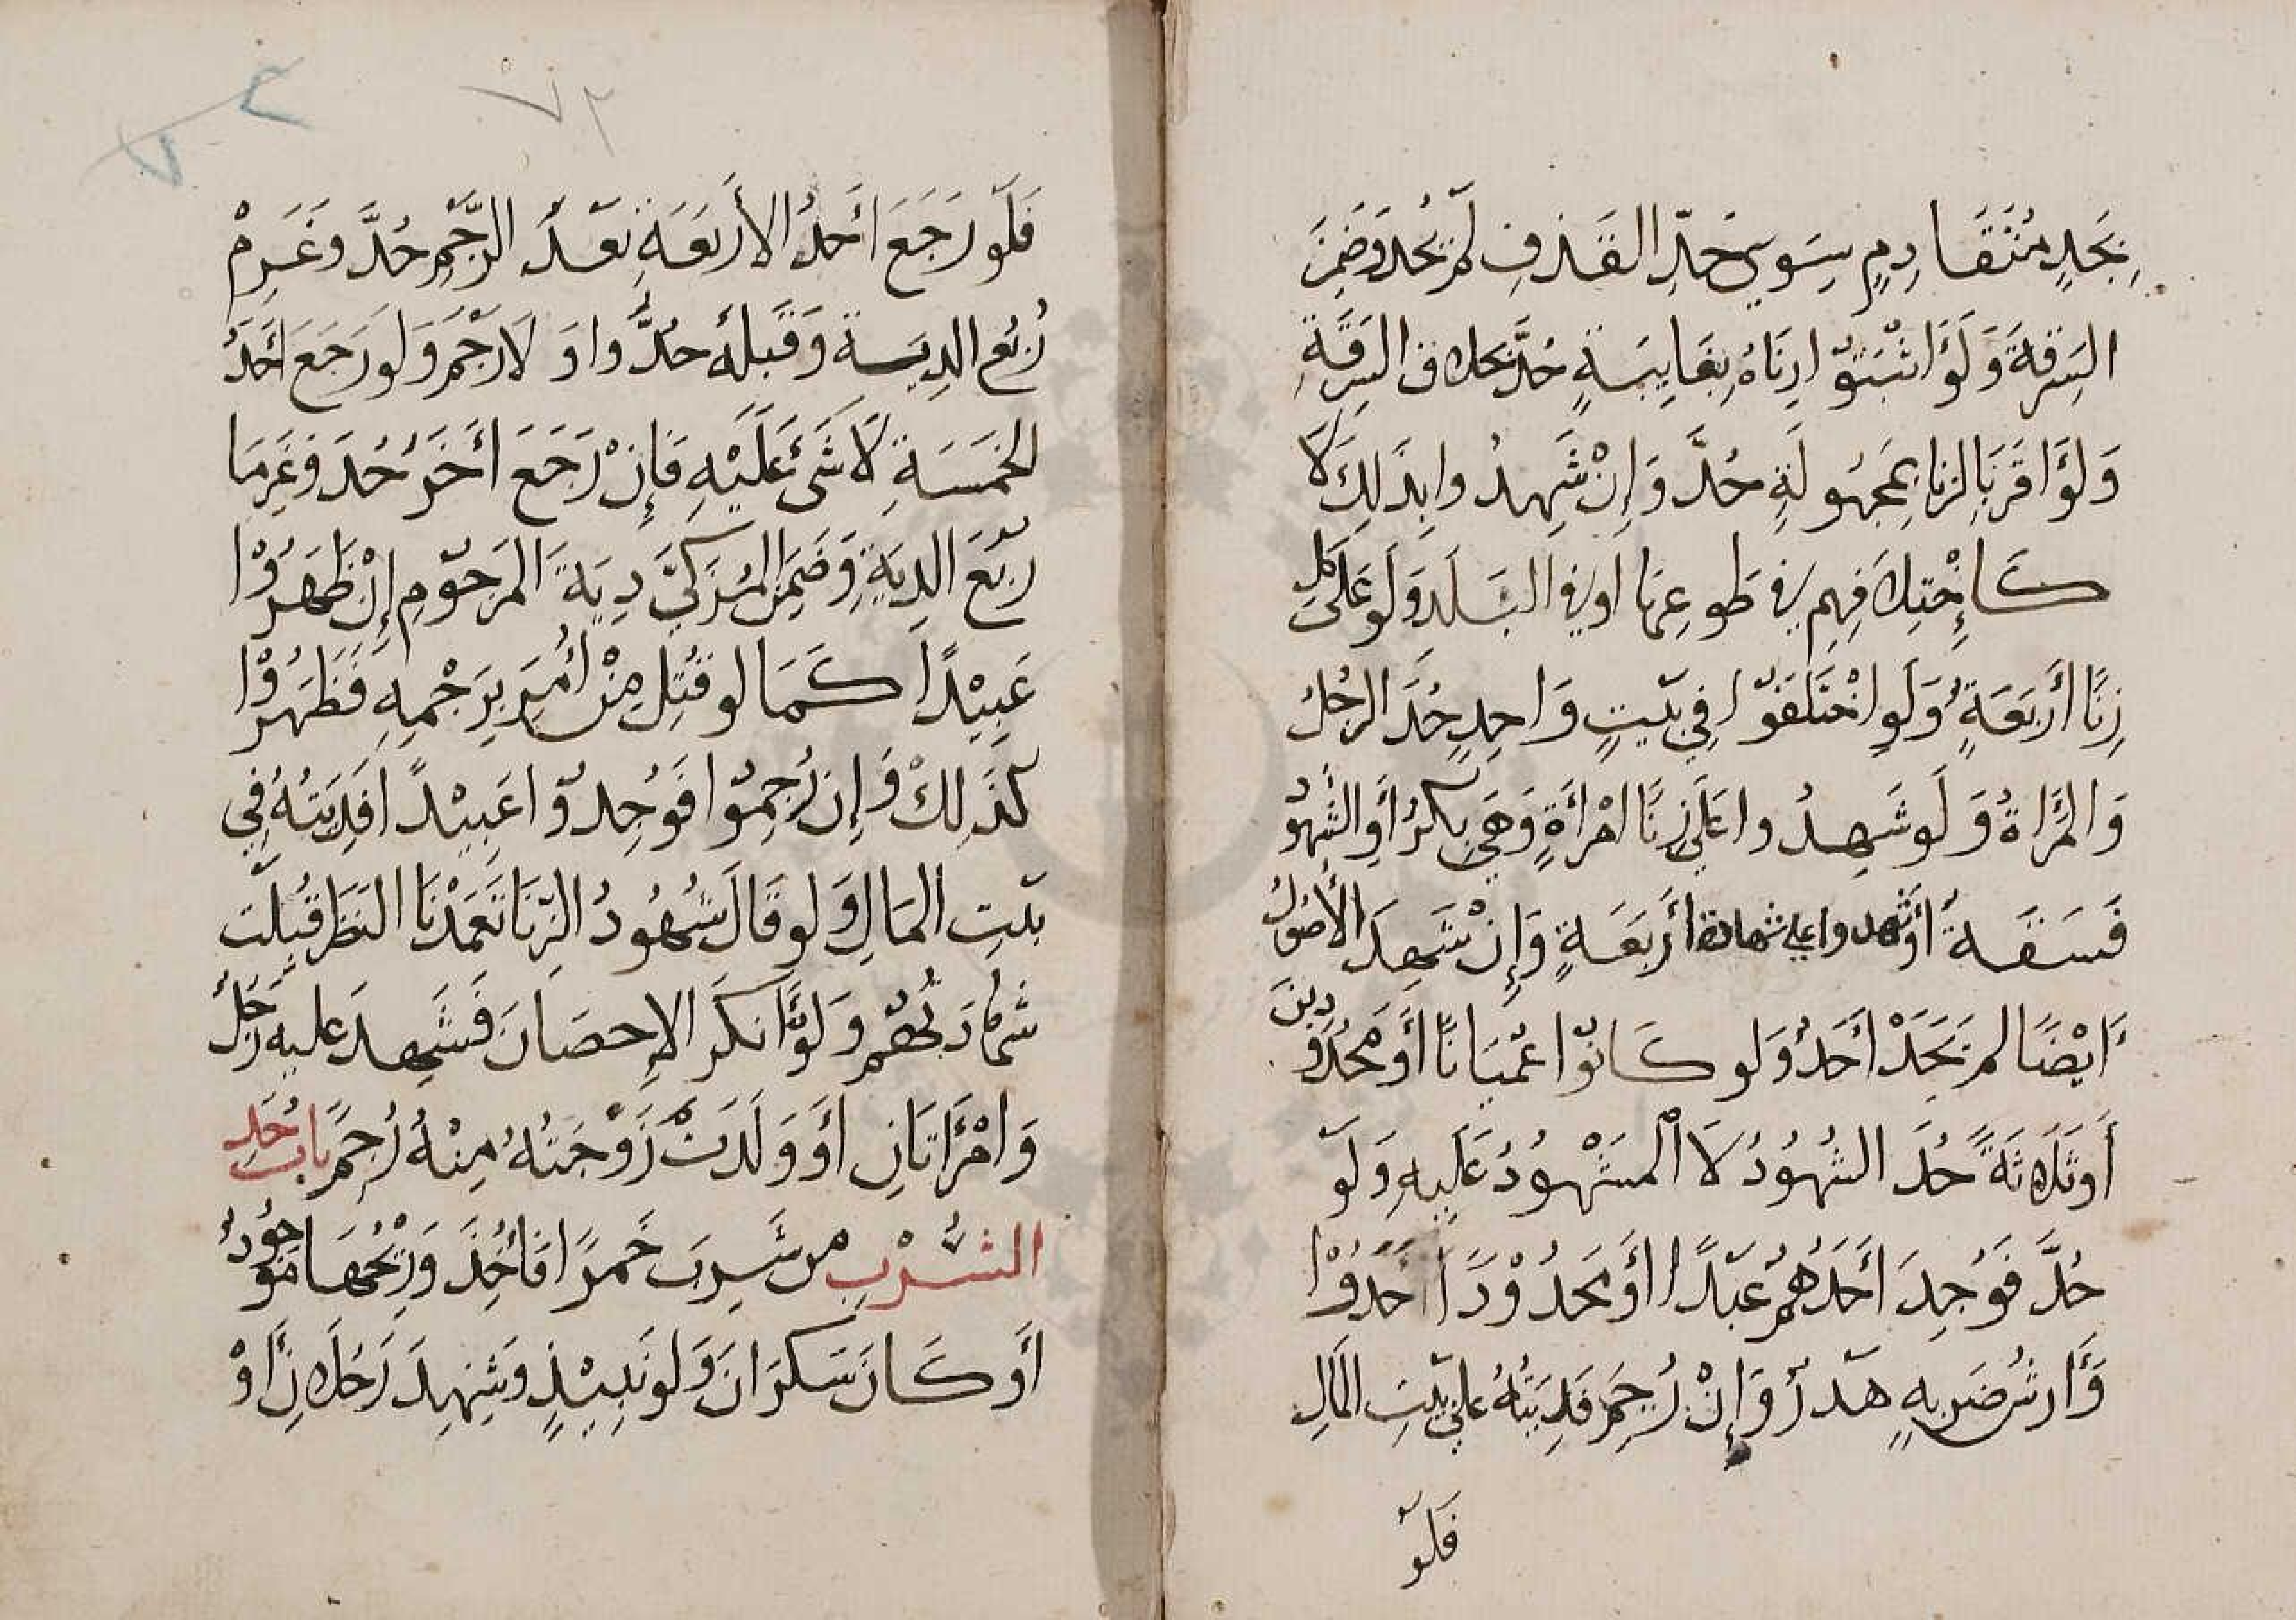 بِحَدٍ مُتَقَادِمٍ سِوَي حَدِّ القَذفِ لَمْ يُحَد وَضَمِنَ
السَرِقَةَ وَلَوْ اَثْبَتُوْا زِنَاهُ بِغَايبَةٍ حُدَّ بخلاف السَرِقَةِ
وَلَوْ اَقَرَّ بِالزنا بِمَجهُولَةٍ حُدَّ وَإِنْ شَهِدُوا بِذَلِكَ لَا
كَاِخْتِلَافِهِم في طَوعِهَا او في البَلَدِ وَلَو عَلَى كُلِ
زِنًا أَرْبَعَةٌ وَلَوِ اخْتَلَفُوْا فِي بَيْتٍ وَاحِدٍ حُدَّ الرجُلُ
وَالمَرْاةُ وَلَو شَهِدُوا عَلَي زِنَا امْرأَةٍ وَهَي بِكرٌ أَوِ الشُهُودُ
فَسَقَةٌ أَوْ شَهدوا علي شهادة أَرْبَعَةٍ وَإِنْ شَهِدَ الأُصُوْلُ
اَيْضًا لم يُحَدْ أَحَدٌ وَلو كَانُوْا عُمْيَانًا أَو مَحْدُوْدِينَ
أَوثَلاثَةً حُدَ الشُهُوْدُ لَا الْمَشْهُوْدُ عَلَيهِ وَلَو
حُدَّ فَوُجِدَ أَحَدُهُمْ عَبْدًا أَو مَحدُوْدًا حُدُّوْا
وَأَرشُ ضَربِهِ هَدَرٌ وَإِنْ رُجِمَ فَدِيَتُهُ عَلي بَيْتِ المَالِ
فَلَوْ
٧٣
فَلَو رَجَعَ اَحَدُ الأَرْبَعَةِ بَعْدَ الرَّجْمِ حُدَّ وَغَرِمْ
رُبُعَ الدِيَةِ وَقَبلَهُ حدُّوا وَلَا رَجْمَ وَلو رَجَعَ اَحَدُ
الخَمْسَةِ لَا شَىْءَ عَلَيْهِ فَإِنْ رَجَعَ اَخَرُ حُدَ وَغَرِمَا
رُبُعَ الدِيَةِ وَضَمِنَ المُزَكّي دِيَةَ المَرجُوْمِ إِنْ ظَهَرُوْا
عَبِيْدًا كَمَا لو قَتَلَ مَنْ اُمِرَ بِرَجْمِهِ فَظَهَرُوْا
كَذَلِكْ وَإِن رُجِمُوْا فَوُجِدُوْا عَبِيْدًا فَدِيَتُهُ فِي
بَيْتِ المَالِ وَلو قَالَ شُهُودُ الزِّنَا تَعَمَدْنَا النَظَرَ قُبِلَتْ
شَهَادَتُهُمْ وَلَوْ اَنْكَرَ الإِحصَانَ فَشَهِدَ عليه رَجُلٌ
وَامْرَأَتَانِ أَوْ وَلَدَتْ زَوْجَتُهُ مِنْهُ رُجِمَ بَابُ حَدِ
الشُرْبِ من شَرِبَ خَمرًا فَأُخِذَ وَرِيْحُهَا مَوْجُوْدٌ
أَو كَانَ سَكرَانَ وَلو بَنَبِيْذٍ وَشَهِدَ رَجُلَانِ أَوْ